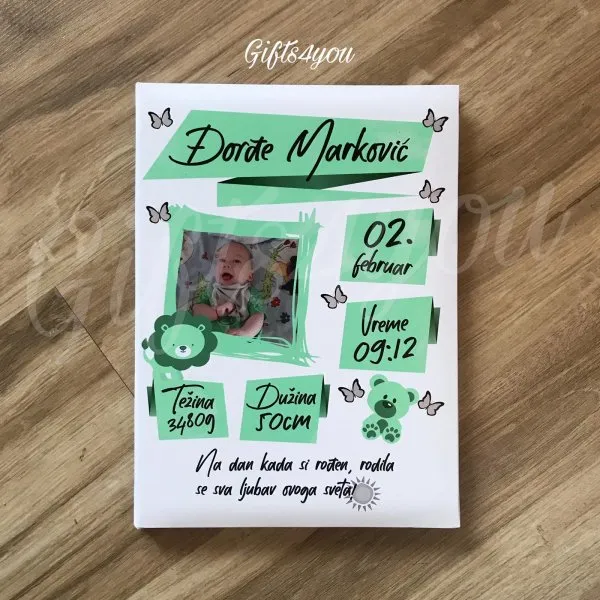 Gifts4you
Đorđe Marković
02.
februar
Vreme
09:12
Težina
3480g
Dužina
50cm
Na dan kada si rođen, rodila
se sva ljubav ovoga sveta!
Gifts4you